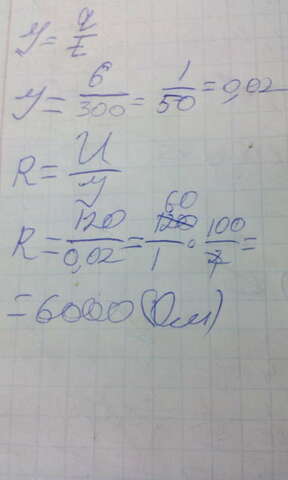 У = q/t
У = 6/300 = 1/50 = 0,02
R = U/У
60
R = 120/0,02 = 120/1 · 100/2 =
= 6000 (Ом)